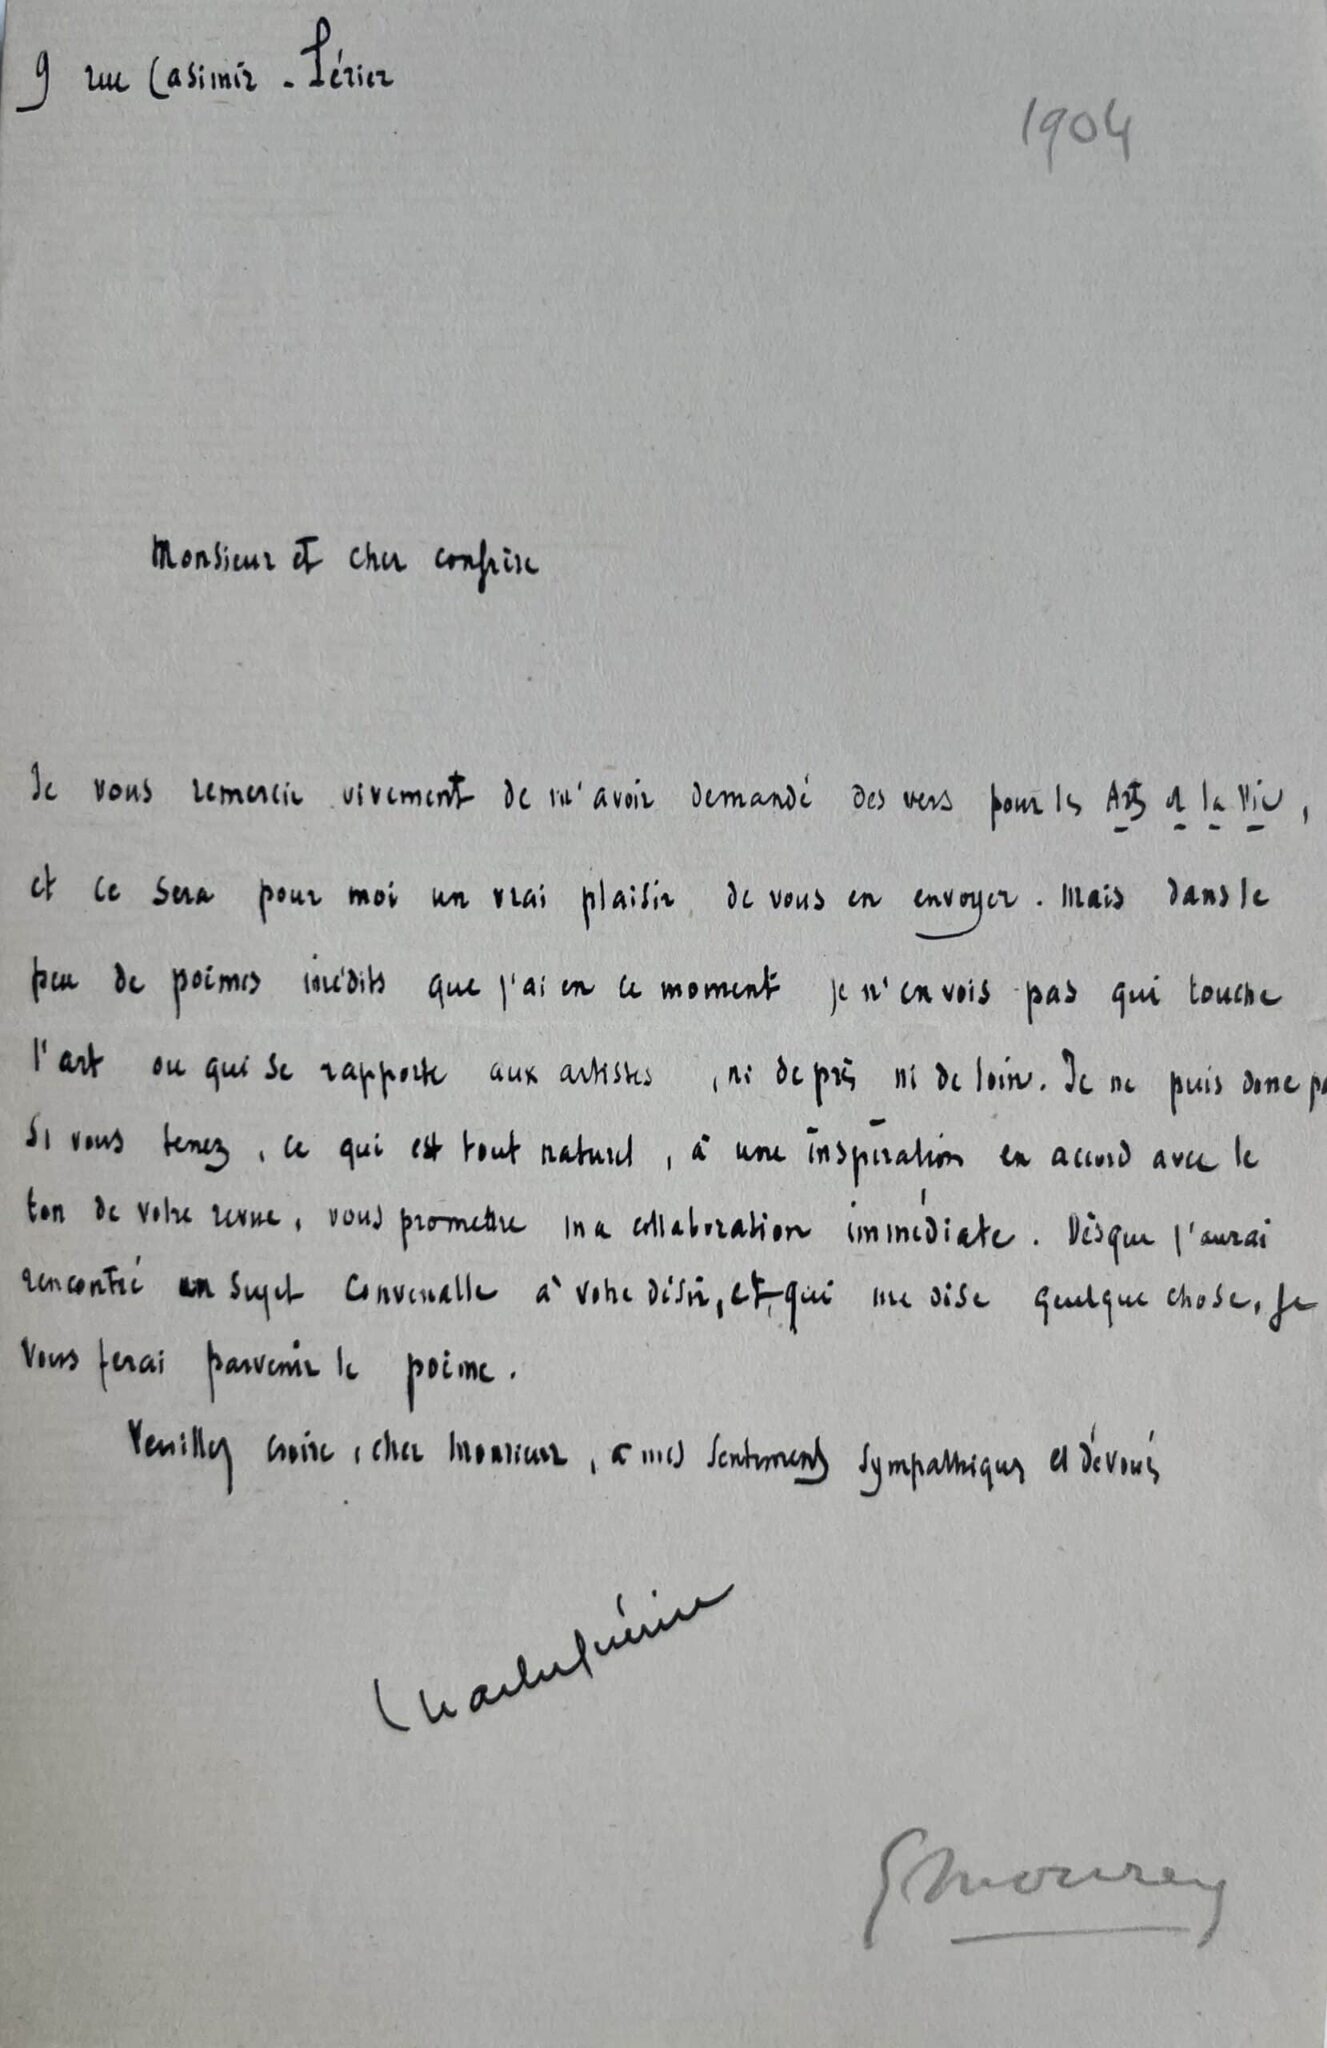 9 rue Casimir-Périer
1904
Monsieur et cher confrère
Je vous remercie vivement de m'avoir demandé des vers pour les Arts et la Vie,
et ce sera pour moi un vrai plaisir de vous en envoyer. Mais dans le
peu de poèmes inédits que j'ai en ce moment je n'en vois pas qui touche
l'art ou qui se rapporte aux artistes, ni de près ni de loin. Je ne puis donc
si vous tenez, ce qui est tout naturel, à une inspiration en accord avec le
ton de votre revue, vous promettre ma collaboration immédiate. Dès que j'aurai
rencontré un sujet convenable à votre désir, et qui me dise quelque chose, je
vous ferai parvenir le poème.
Veuillez croire, cher Monsieur, à mes sentiments sympathiques et dévoués
Charles Guérin
G Mourey